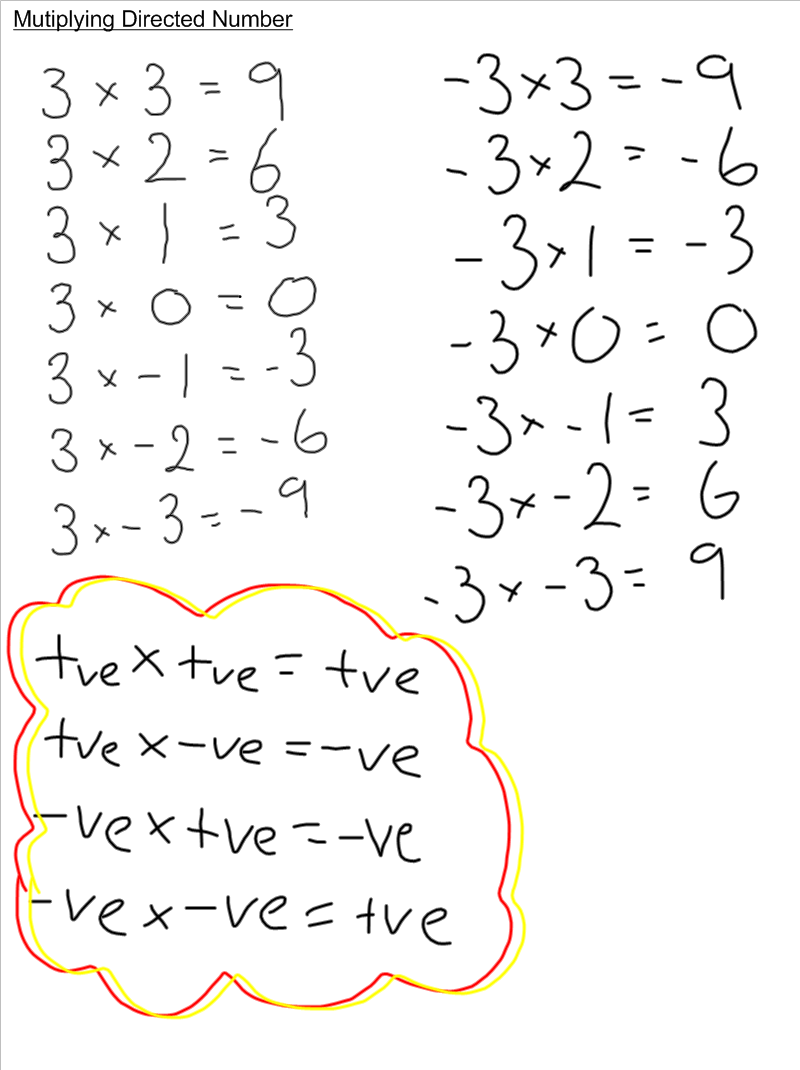 Mutiplying Directed Number
3 × 3 = 9
3 × 2 = 6
3 × 1 = 3
3 × 0 = 0
3 × -1 = -3
3 × -2 = -6
3 × -3 = -9
-3 × 3 = -9
-3 × 2 = -6
-3 × 1 = -3
-3 × 0 = 0
-3 × -1 = 3
-3 × -2 = 6
-3 × -3 = 9
+ve × +ve = +ve
+ve × -ve = -ve
-ve × +ve = -ve
-ve × -ve = +ve